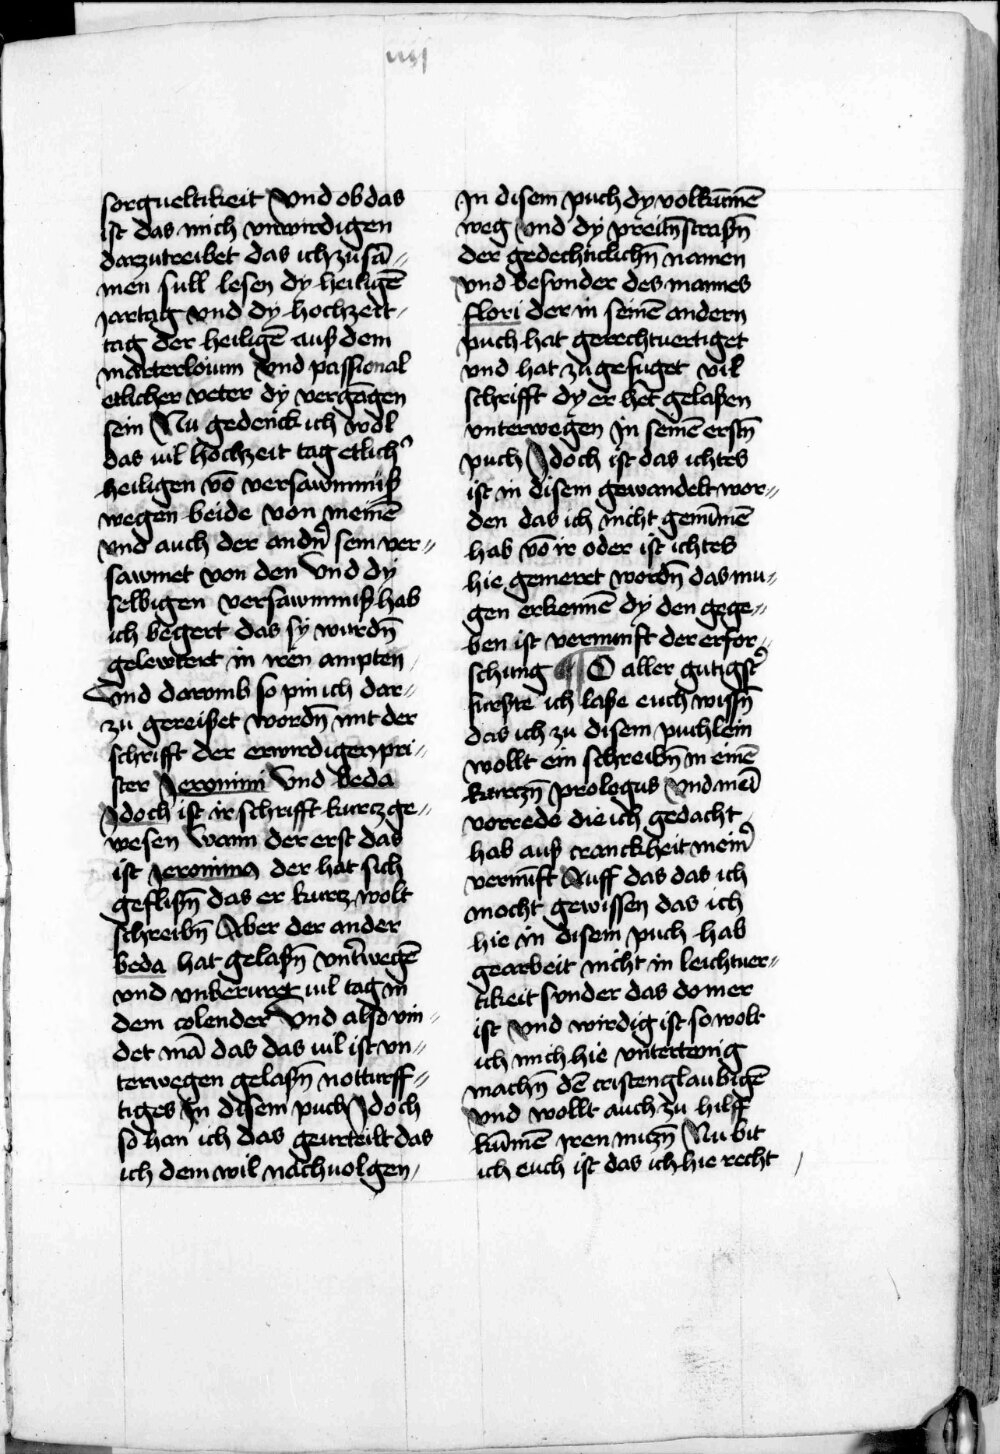 iiij
sorgueltikeit Vnd ob das
ist das mich vnwirdigen
darzu treibet das ich zu sā⸗
men sull lesen dy heiligē
jartag vnd dy hochzeit⸗
tag der heiligē auß dem
marterloium Vnd passional
etlicher veter dy vergāgen
sein Nu gedenck ich wol
das uil hochzeit tag etlichʼ
heiligen vō versawmniß
wegen beide von meinē
vnd auch der andnʼ sein ver⸗
sawmet von den Vnd dy
selbigen versawmniß hab
ich begert das sy wurdn̄
gelewtert in iren ampten
Vnd daromb so pin ich dar⸗
zu gereißet wordn̄ mit der
schrifft der erwirdigen pri⸗
ster Jeronimi Vnd beda
Jdoch ist ir schrifft kurcz ge⸗
wesen Wann der erst das
ist Jeronimus der hat sich
geflißn̄ das er kurcz wolt
schreibn̄ Aber der ander
beda hat gelaßn̄ vntʼwegē
vnd vnberuret uil tag in
dem colender Vnd also vin⸗
det mā das das uil ist vn⸗
terwegen gelaßn̄ notturff⸗
tiges Jn disem puch Jdoch
so han ich das geurteilt das
ich dem wil nachuolgen
Jn disem puch dy volkūmē
weg Vnd dy preitn̄ straßn̄
der gedechtlichn̄ namen
vnd besunder des mannes
flori der in seinē andern
puch hat gerechtuertiget
vnd hat zu gefuget vil
schrifft dy er het gelaßen
vnterwegen Jn seinē erstn̄
puch Jdoch ist das ichtes
ist in disem gewandelt wor⸗
den das ich nicht genūmē
hab vō ir oder ist ichtes
hie gemeret wordn̄ das mu⸗
gen erkennē dy den gege⸗
ben ist vernunft der erfor⸗
schung ¶ O aller gutigstʼ
furste ich laße euch wissn̄
das ich zu disem puchlein
wollt ein schreibn̄ in einē
kurczn̄ prologus Vnd mein
vorrede die ich gedacht
hab auß cranckheit meinʼ
vernūft Auff das das ich
mocht gewissen das ich
hie in disem puch hab
gearbeit nicht in leichtuer⸗
tikeit sunder das do mer
ist Vnd wirdig ist so wolt
ich mich hie vntertenig
machn̄ dē cristenglaubigē
Vnd wollt auch zu hilff
kūmē iren muczn̄ Nu bit
ich euch ist das ich hie recht